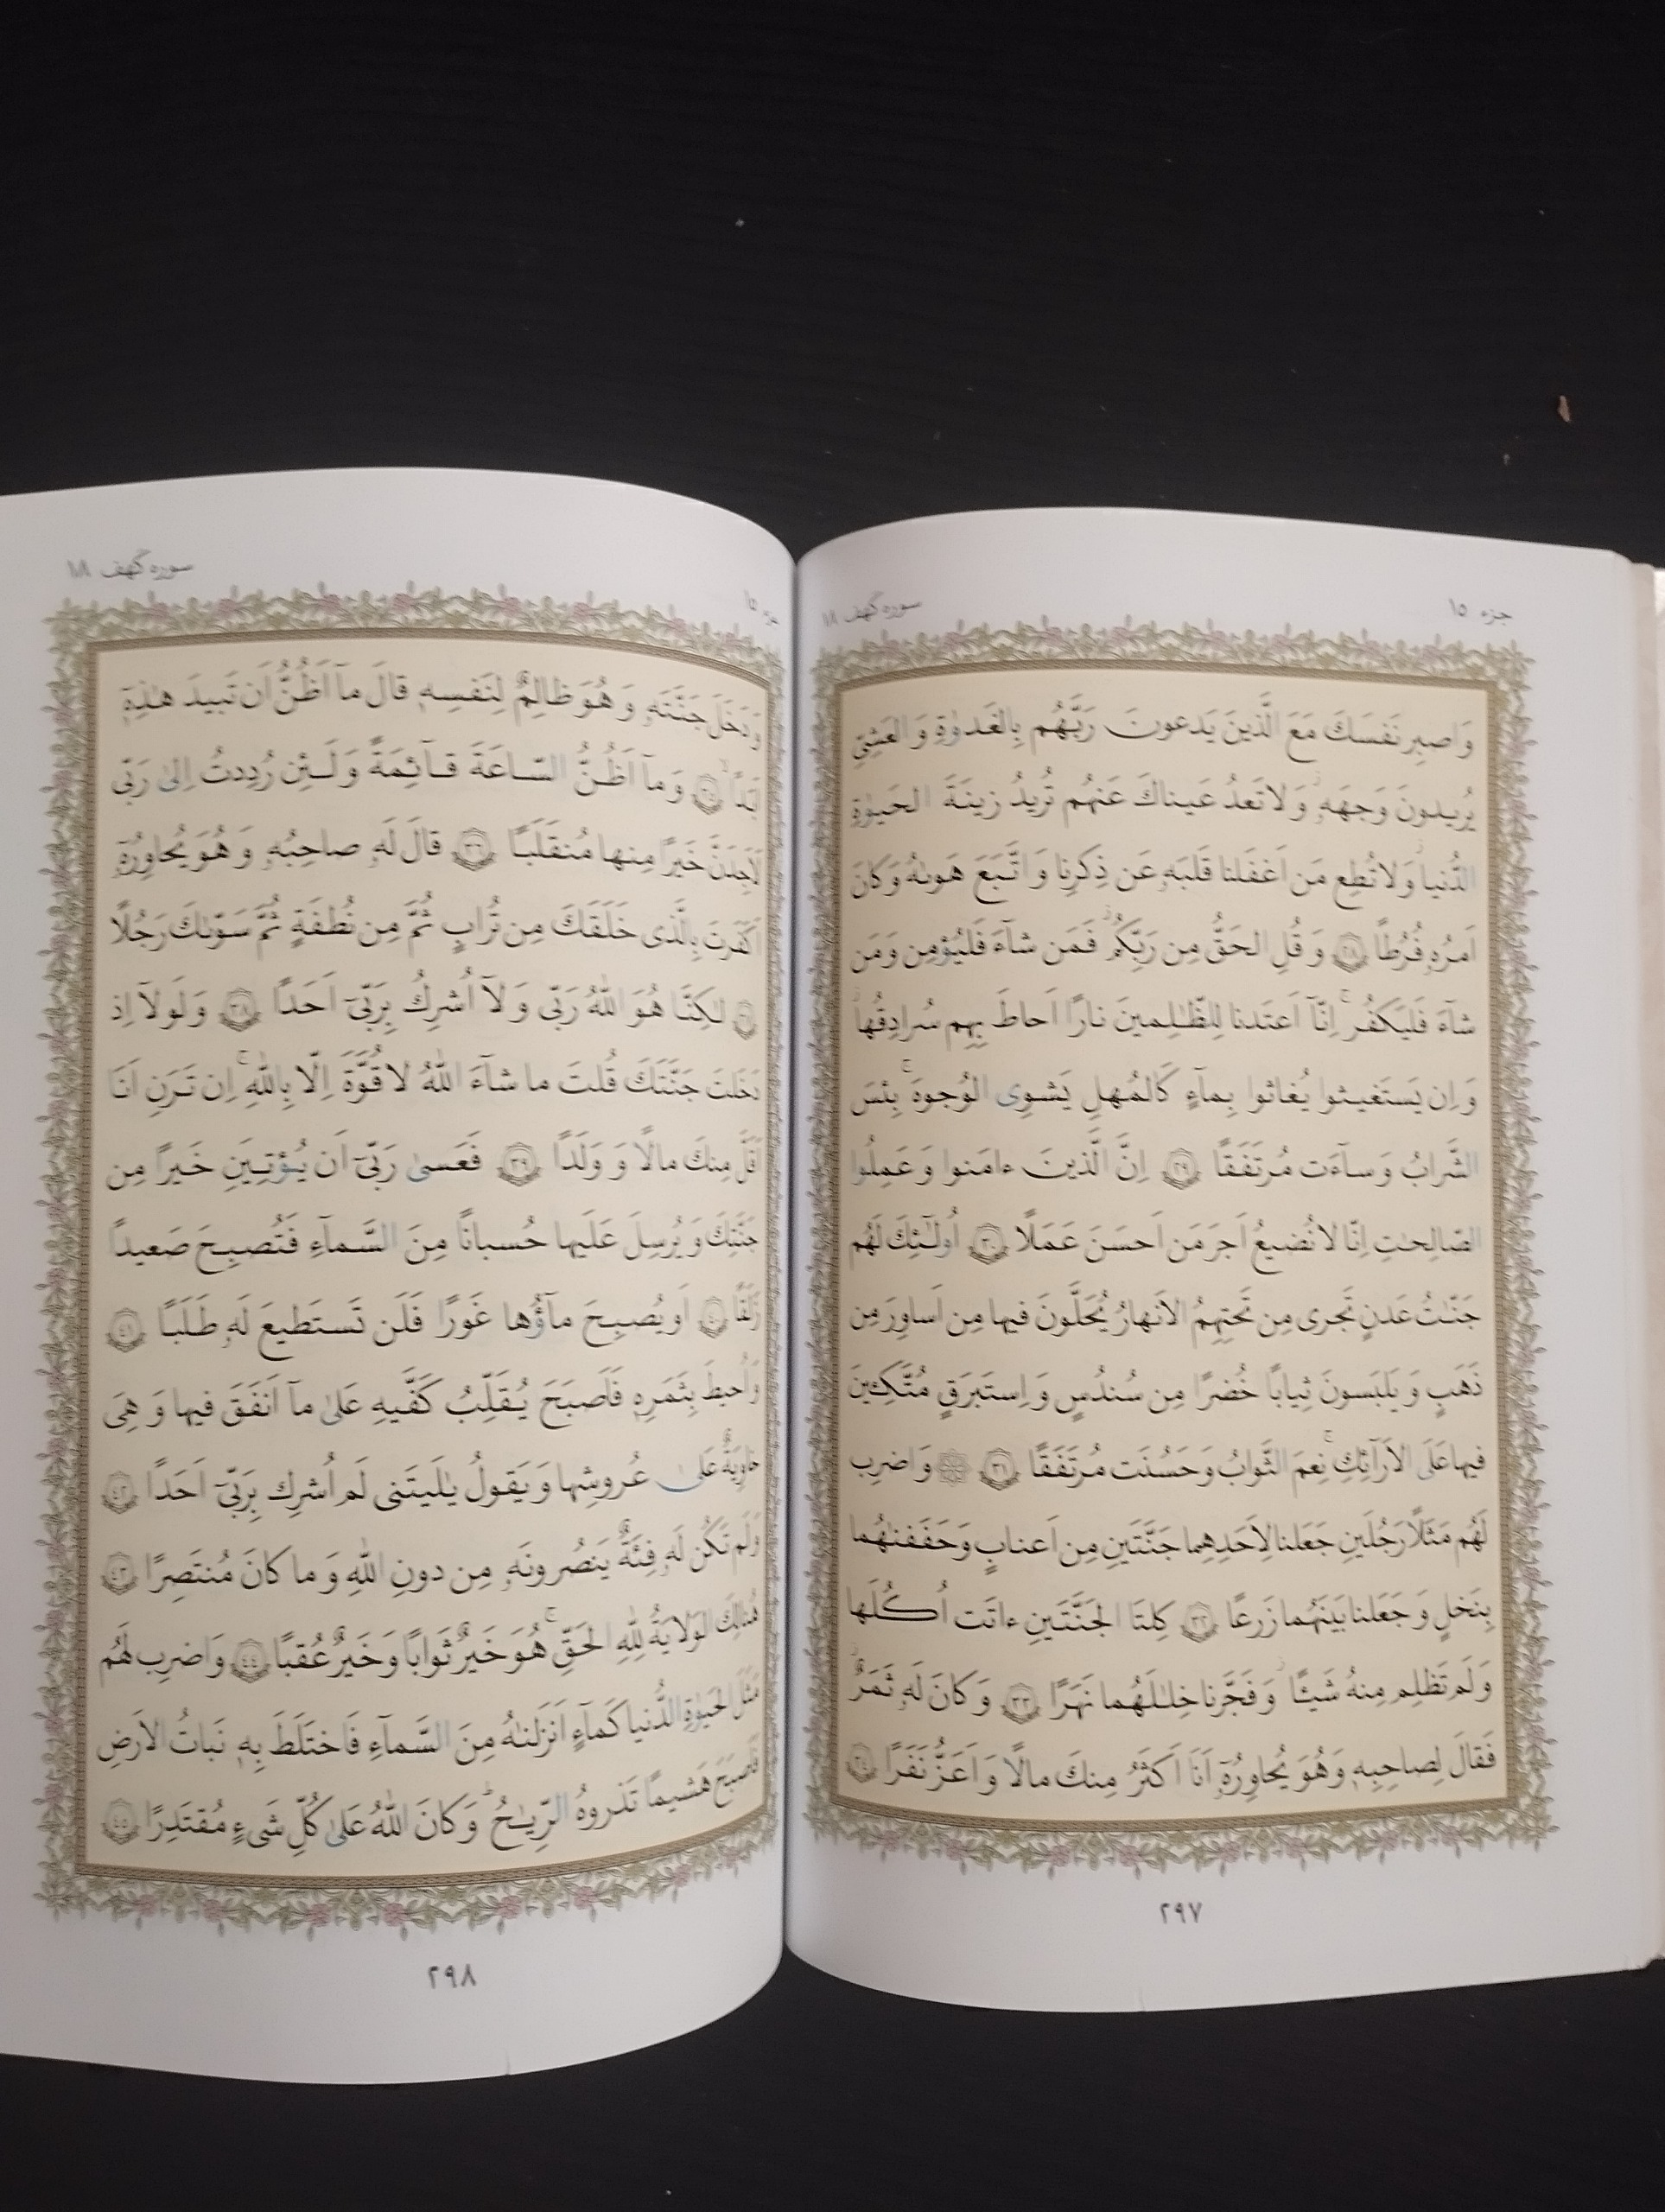 جزء ۱۵
سوره کهف ۱۸
وَ اصبِر نَفسَكَ مَعَ الَّذينَ يَدعونَ رَبَّهُم بِالغَدوٰةِ وَ العَشِيِّ
يُريدونَ وَجهَهُ وَ لا تَعدُ عَيناكَ عَنهُم تُريدُ زينَةَ الحَيوٰةِ
الدُّنيا وَ لا تُطِع مَن اَغفَلنا قَلبَهُ عَن ذِكرِنا وَ اتَّبَعَ هَوىٰهُ وَ كانَ
اَمرُهُ فُرُطًا ۲۸ وَ قُلِ الحَقُّ مِن رَبِّكُم فَمَن شآءَ فَليُؤمِن وَ مَن
شآءَ فَليَكفُر اِنّآ اَعتَدنا لِلظّٰلِمينَ نارًا اَحاطَ بِهِم سُرادِقُها
وَ اِن يَستَغيثوا يُغاثوا بِمآءٍ كَالمُهلِ يَشوِى الوُجوهَ بِئسَ
الشَّرابُ وَ سآءَت مُرتَفَقًا ۲۹ اِنَّ الَّذينَ ءامَنوا وَ عَمِلُوا
الصّالِحٰتِ اِنّا لا نُضيعُ اَجرَ مَن اَحسَنَ عَمَلًا ۳۰ اُولٰٓئِكَ لَهُم
جَنّٰتُ عَدنٍ تَجرى مِن تَحتِهِمُ الاَنهارُ يُحَلَّونَ فيها مِن اَساوِرَ مِن
ذَهَبٍ وَ يَلبَسونَ ثِيابًا خُضرًا مِن سُندُسٍ وَ اِستَبرَقٍ مُتَّكِـٔينَ
فيها عَلَى الاَرآئِكِ نِعمَ الثَّوابُ وَ حَسُنَت مُرتَفَقًا ۳۱ وَ اضرِب
لَهُم مَثَلًا رَجُلَينِ جَعَلنا لِاَحَدِهِما جَنَّتَينِ مِن اَعنابٍ وَ حَفَفنٰهُما
بِنَخلٍ وَ جَعَلنا بَينَهُما زَرعًا ۳۲ كِلتَا الجَنَّتَينِ ءاتَت اُكُلَها
وَ لَم تَظلِم مِنهُ شَيئًا وَ فَجَّرنا خِلٰلَهُما نَهَرًا ۳۳ وَ كانَ لَهُ ثَمَرٌ
فَقالَ لِصاحِبِهِ وَ هُوَ يُحاوِرُهُٓ اَنَا اَكثَرُ مِنكَ مالًا وَ اَعَزُّ نَفَرًا ۳۴
۲۹۷
جزء ۱۵
سوره کهف ۱۸
وَ دَخَلَ جَنَّتَهُ وَ هُوَ ظالِمٌ لِنَفسِهِ قالَ مآ اَظُنُّ اَن تَبيدَ هٰذِهِٓ
اَبَدًا ۳۵ وَ مآ اَظُنُّ السّاعَةَ قآئِمَةً وَ لَئِن رُدِدتُ اِلىٰ رَبّى
لَاَجِدَنَّ خَيرًا مِنها مُنقَلَبًا ۳۶ قالَ لَهُ صاحِبُهُ وَ هُوَ يُحاوِرُهُٓ
اَكَفَرتَ بِالَّذى خَلَقَكَ مِن تُرابٍ ثُمَّ مِن نُطفَةٍ ثُمَّ سَوّىٰكَ رَجُلًا
۳۷ لٰكِنَّا هُوَ اللّٰهُ رَبّى وَ لآ اُشرِكُ بِرَبّىٓ اَحَدًا ۳۸ وَ لَولآ اِذ
دَخَلتَ جَنَّتَكَ قُلتَ ما شآءَ اللّٰهُ لا قُوَّةَ اِلّا بِاللّٰهِ اِن تَرَنِ اَنَا
اَقَلَّ مِنكَ مالًا وَ وَلَدًا ۳۹ فَعَسىٰ رَبّىٓ اَن يُؤتِيَنِ خَيرًا مِن
جَنَّتِكَ وَ يُرسِلَ عَلَيها حُسبانًا مِنَ السَّمآءِ فَتُصبِحَ صَعيدًا
زَلَقًا ۴۰ اَو يُصبِحَ مآؤُها غَورًا فَلَن تَستَطيعَ لَهُ طَلَبًا ۴۱
وَ اُحيطَ بِثَمَرِهِ فَاَصبَحَ يُقَلِّبُ كَفَّيهِ عَلىٰ مآ اَنفَقَ فيها وَ هِىَ
خاوِيَةٌ عَلىٰ عُروشِها وَ يَقولُ يٰلَيتَنى لَم اُشرِك بِرَبّىٓ اَحَدًا ۴۲
وَ لَم تَكُن لَهُ فِئَةٌ يَنصُرونَهُ مِن دونِ اللّٰهِ وَ ما كانَ مُنتَصِرًا ۴۳
هُنالِكَ الوَلايَةُ لِلّٰهِ الحَقِّ هُوَ خَيرٌ ثَوابًا وَ خَيرٌ عُقبًا ۴۴ وَ اضرِب لَهُم
مَثَلَ الحَيوٰةِ الدُّنيا كَمآءٍ اَنزَلنٰهُ مِنَ السَّمآءِ فَاختَلَطَ بِهِ نَباتُ الاَرضِ
فَاَصبَحَ هَشيمًا تَذروهُ الرِّيٰحُ وَ كانَ اللّٰهُ عَلىٰ كُلِّ شَىءٍ مُقتَدِرًا ۴۵
۲۹۸